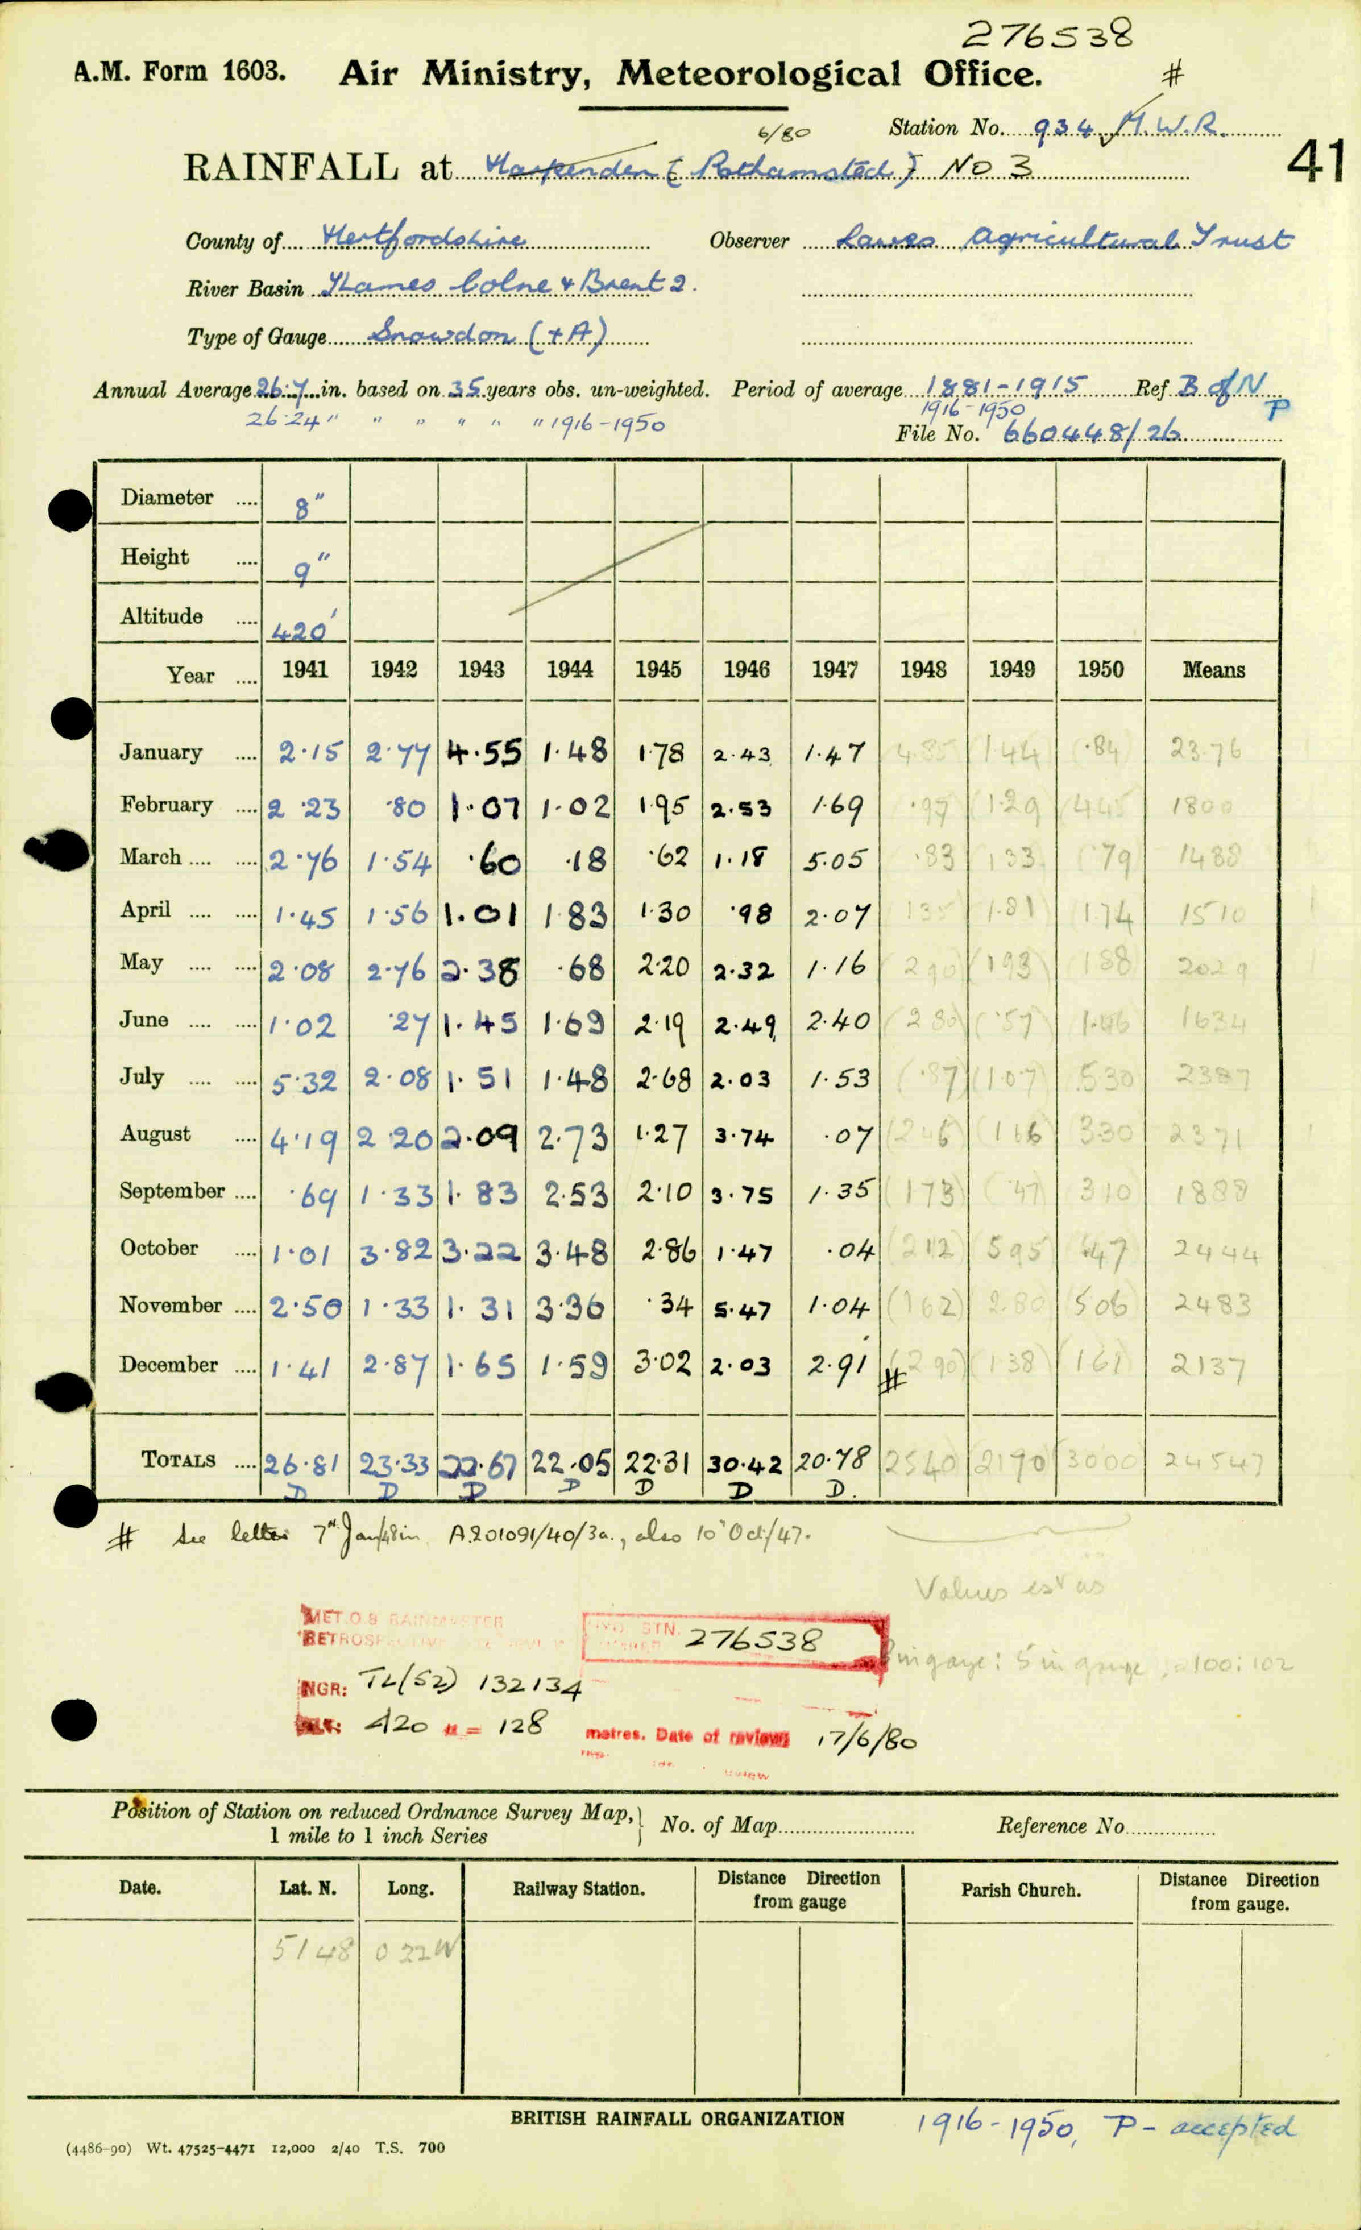 276538
A.M. Form 1603. Air Ministry, Meteorological Office. #
Station No. 934 M.W.R.
6/80
RAINFALL at Harpenden (Rothamsted) No 3
41
County of Hertfordshire Observer Lawes Agricultural Trust
River Basin Thames Colne & Brent 2.
Type of Gauge Snowdon (+A)
Annual Average 26.7 in. based on 35 years obs. un-weighted. Period of average 1881-1915 Ref B of N
26.24 " " " " " " 1916-1950 1916-1950 P
File No. 660448/26
Diameter .... 8"
Height .... 9"
Altitude .... 420'
Year .... 1941 1942 1943 1944 1945 1946 1947 1948 1949 1950 Means
January .... 2.15 2.77 4.55 1.48 1.78 2.43 1.47 4.85 (1.44) (.84) 23.76
February .... 2.23 .80 1.07 1.02 1.95 2.53 1.69 .97 (1.29) 4.45 1800
March .... .... 2.76 1.54 .60 .18 .62 1.18 5.05 .83 (133) (.79) 1488
April .... .... 1.45 1.56 1.01 1.83 1.30 .98 2.07 (135) (1.81) (174 1510
May .... .... 2.08 2.76 2.38 .68 2.20 2.32 1.16 (290) (193) (188) 2029
June .... .... 1.02 .27 1.45 1.69 2.19 2.49 2.40 (280) (.57) 1.46 1634
July .... .... 5.32 2.08 1.51 1.48 2.68 2.03 1.53 (.87) (107) 530 2387
August .... 4.19 2.20 2.09 2.73 1.27 3.74 .07 (246) (116 330 2371
September .... .69 1.33 1.83 2.53 2.10 3.75 1.35 (173) (.47) 310 1888
October .... 1.01 3.82 3.22 3.48 2.86 1.47 .04 (212) 595 .47 2444
November .... 2.50 1.33 1.31 3.36 .34 5.47 1.04 (162) 2.80 (506) 2483
December .... 1.41 2.87 1.65 1.59 3.02 2.03 2.91 # (290) (138) (161) 2137
TOTALS .... 26.81 23.33 22.67 22.05 22.31 30.42 20.78 2540 2170 3000 24547
D D D D D D D.
# See letter 7th Jan/48 in A.201091/40/3a., also 10th Oct/47.
Values estd as
MET.O.8 RAINMASTER
RETROSPECTIVE
STN. 276538
in gauge: 5 in gauge 100:102
NGR: TL(52) 132134
ALT: 420 = 128 metres. Date of review 17/6/80
Position of Station on reduced Ordnance Survey Map, No. of Map Reference No.
1 mile to 1 inch Series
Date. Lat. N. Long. Railway Station. Distance Direction from gauge Parish Church. Distance Direction from gauge.
51 48 0 22W
BRITISH RAINFALL ORGANIZATION 1916-1950, P - accepted
(4486-90) Wt. 47525-4471 12,000 2/40 T.S. 700